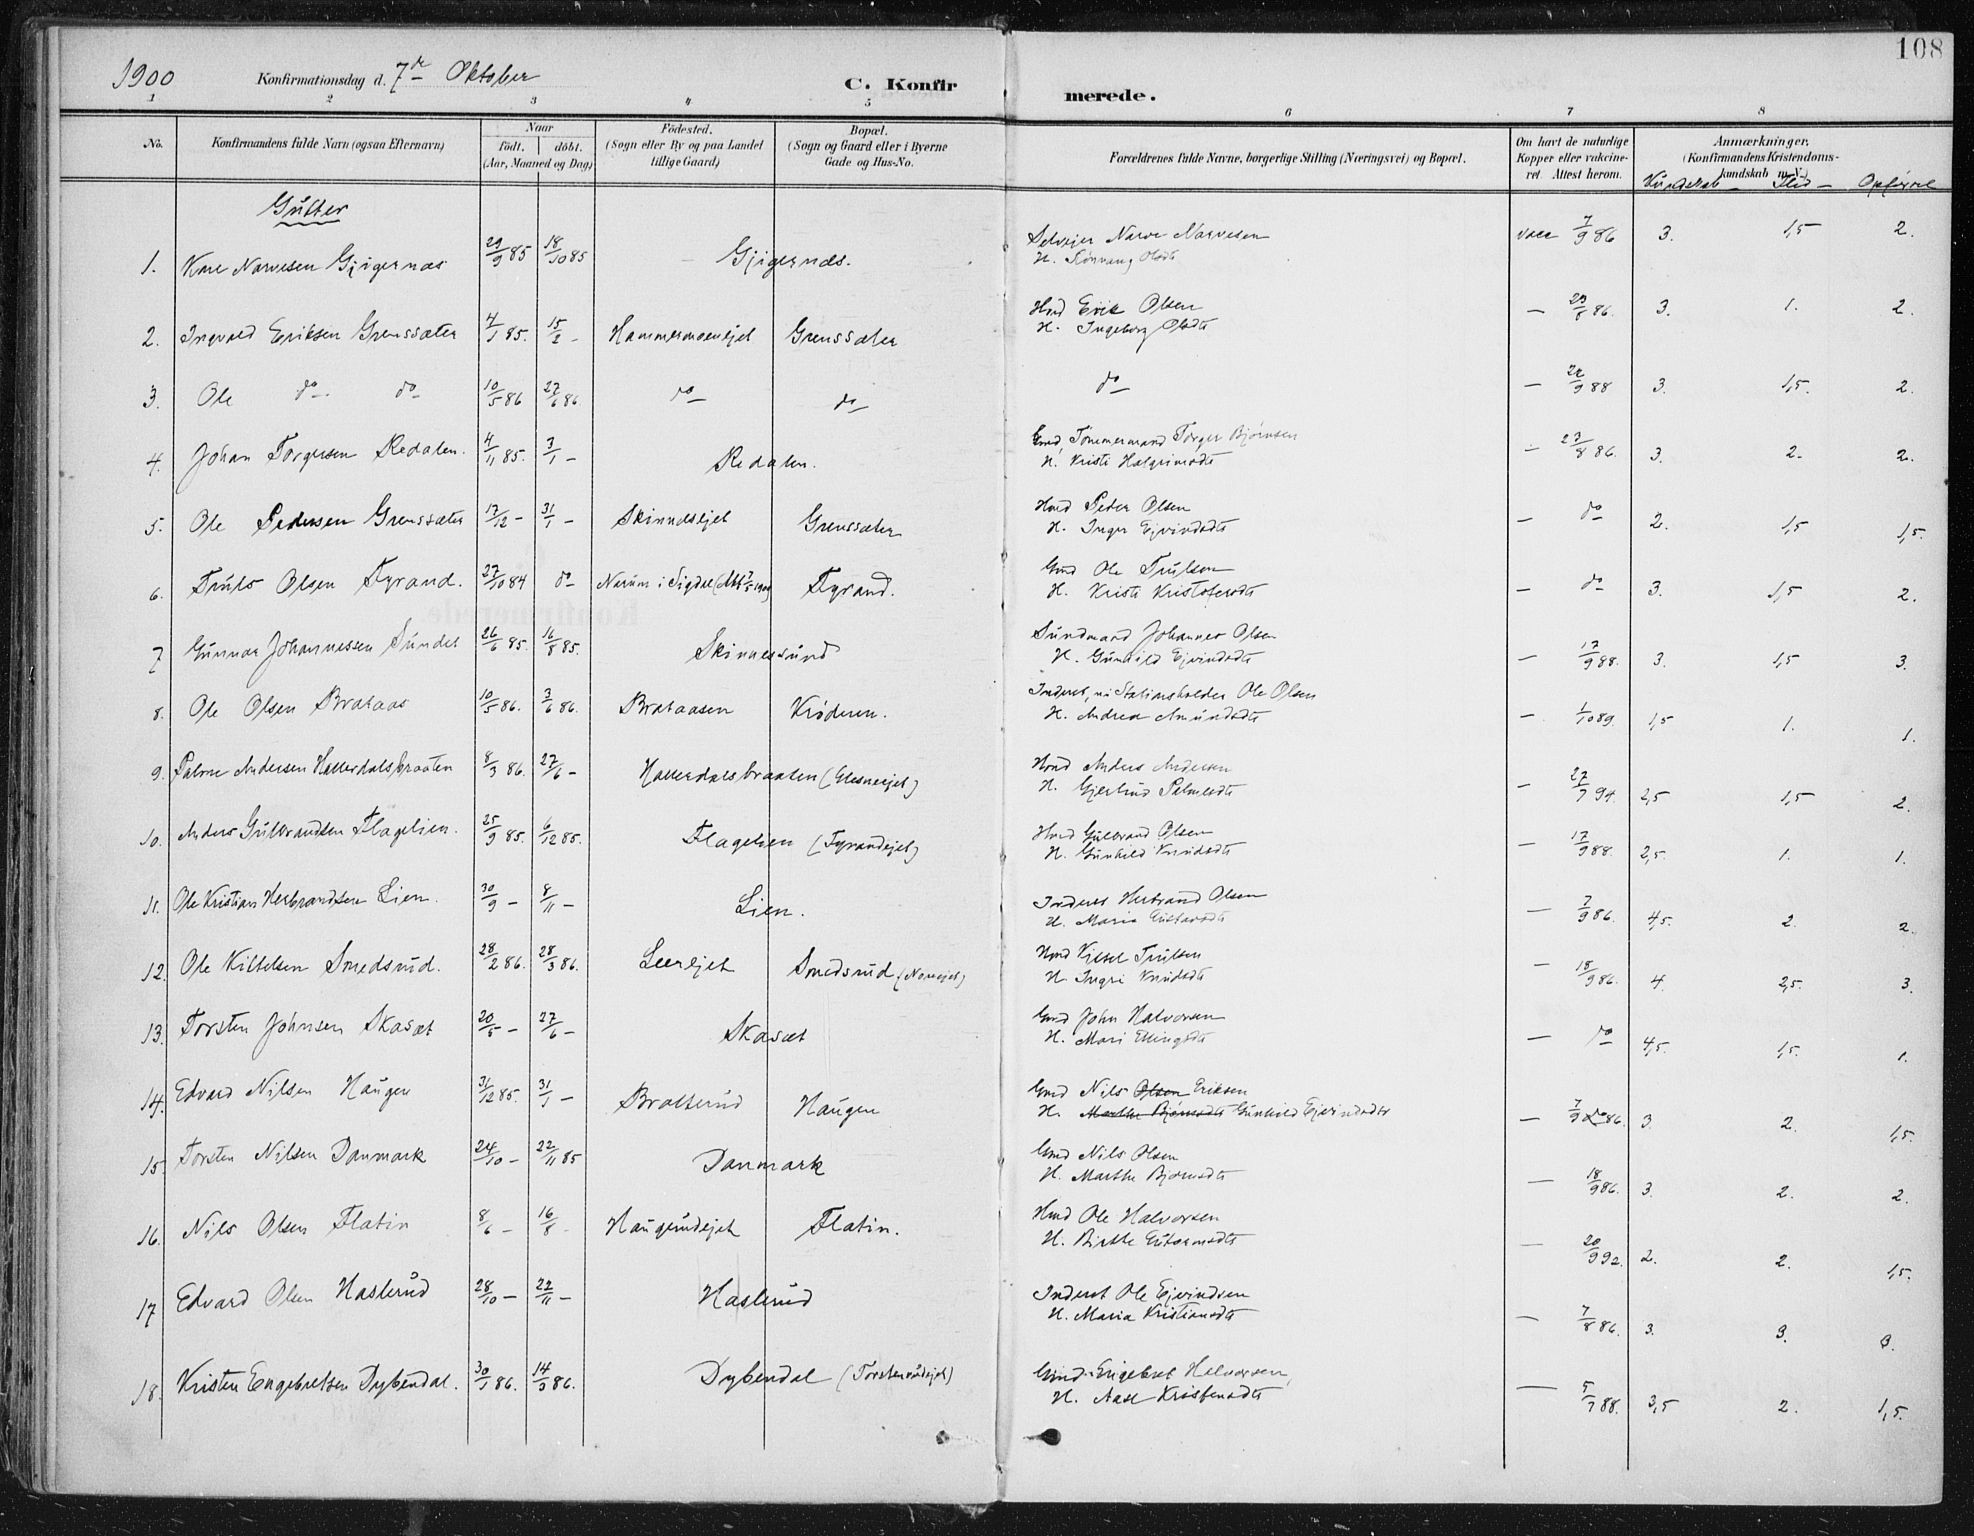 108
1900 Konfirmationsdag d. 7de Oktober C. Konfirmerede.
1 2 3 4 5 6 7 8
No. Konfirmandens fulde Navn (ogsaa Efternavn) Naar født. døbt. (Aar, Maaned og Dag) Födested. (Sogn eller By og paa Landet tillige Gaard) Bopæl. (Sogn og Gaard eller i Byerne Gade og Hus-No. Forældrenes fulde Navne, borgerlige Stilling (Næringsvei) og Bopæl. Om havt de naturlige Kopper eller vakcineret. Attest herom. Anmærkninger. (Konfirmandens Kristendomskundskab m. V.)
Kundskab – Flid – Opførsel
Gutter
1. Narvesen Gjigernæs 29/9 85 18/10 85 Gjigernæs. Selvejer Narve Narvesen vacc 7/9 86 3. 1,5 2.
H.
2. Ingvald Eriksen Grenssæter 4/1 85. 15/2 – Hammermoenejet Grenssæter Hmd Erik Olsen – 29/8 86. 3. 1. 2.
H. Ingeborg Olsdtr
3. Ole do do 10/5 86 27/6 86. do do do – /9 88 3. 1,5. 2.
4. Johan Torgersen Redalen. 4/11 85. 3/1 – Redalen. Gmd, Tömmermand Torger Bjørnsen – 27/8 86. 3. 2. 2.
H. Kristi Halgrimsdtr
5. Ole Pedersen Grenssæter 17/12 – 31/1 – Skinnesejet Grenssæter Hmd Peter Olsen – do 2. 1,5 1,5.
H. Inger Ejvindsdtr
6. Truls Olsen Fyrand. 27/10 84 do Narum i Sigdal Fyrand. Gmd Ole Trulsen – do 3. 1,5 2.
H. Kristi Kristofersdtr
7 Gunnar Johannessen Sundet 26/6 85. 16/8 85. Skinnessund Sundmand Johannes Olsen – 17/9 88. 3. 1,5 3.
H. Gunhild Ejvindsdtr
8. Ole Olsen Brataas 10/5 86. 3/6 86. Brataasen Krøderen. Inderst, nu Stationsholder Ole Olsen – 1/10 89. 1,5 1. 1.
H. Andrea Amundsdtr
9. Palme Andersen Hallerdalsbraaten 8/3 86. 27/6 – Hallerdalsbraaten (Glesneejet) Hmd Anders Andersen – 27/7 94. 2,5 1,5 2.
H. Gjertrud Palmesdtr
10. Anders Gulbrandsen Flagelien. 25/9 85. 6/12 85. Flagelien (Fyrandejet) Hmd Gulbrand Olsen – 17/9 88. 2,5. 1. 1.
H. Gunhild Knudsdtr
11. Ole Kristian Herbrandsen Lien. 30/9 – 8/11 – Lien. Inderst Herbrand Olsen – 7/9 86. 4,5. 2. 2.
H. Maria Gustavsdtr
12. Ole Kittelsen Smedsrud. 28/2 86. 28/3 86. Leerejet Smedsrud Hmd Kittel Trulsen – 18/9 86. 4. 2,5. 3.
H. Ingri Knudsdtr
13. Torsten Johnsen Skasæt 20/5 – 27/6 – Skasæt Gmd John Halvorsen – do 4,5. 1,5. 1.
H. Mari Ellingsdtr
14. Edvard Nilsen Haugen 31/12 85. 31/1 – Bratterud Haugen Gmd Nils Olsen Eriksen – 7/9 do 86. 3. 2. 1,5.
H. Marthe Bjørnsdtr Gunhild Ejvindsdtr
15. Torsten Nilsen Danmark 24/10 – 22/11 85 Danmark Gmd Nils Olsen – 18/9 86. 3. 2. 2.
H. Marthe Bjørnsdtr
16. Nils Olsen Flatin 8/6 – 16/8 – Haugrudejet Flatin. Hmd Ole Halvorsen – 20/9 92. 2. 2. 1,5.
H. Birthe Guttormsdtr
17 Edvard Olsen Haslerud 28/10 – 22/11 – Haslerud Inderst Ole Ejvindsen – 7/8 86. 3. 3. 3.
H. Maria Kristiansdtr
18. Kristen Engebretsen Dybendal. 30/1 86. 14/3 86. Dybendal (Torsterudejet) Gmd. Engebret Halvorsen, – 5/7 88. 3,5 2. 1,5.
H. Aase Kristensdtr